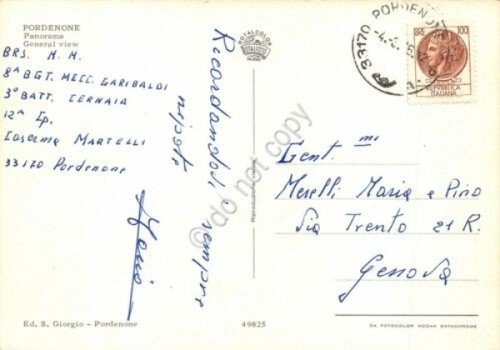 PORDENONE
Panorama
General view
BRS. M. M.
8ª BGT. MECC. GARIBALDI
3º BATT. CERNAIA
12ª Cp.
Caserma MARTELLI
33170 Pordenone
Ricordandovi sempre
nipote
ROTALCOLOR
ROTALFOTO
Riproduzione
do not copy
33170 PORDENONE
LIRE 100
REPVBBLICA
ITALIANA
Gent.mi
Merelli Maria e Pino
Via Trento 21 R.
Genova
Ed. S. Giorgio - Pordenone
49825
DA FOTOCOLOR KODAK EKTACHROME